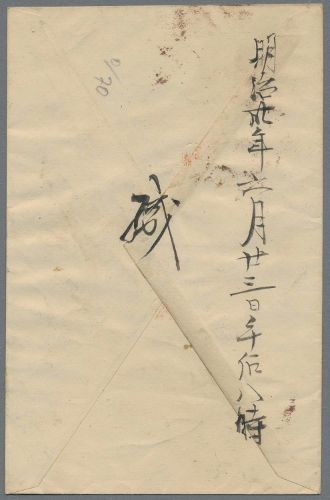 明治卅年六月廿三日午后八時
緘